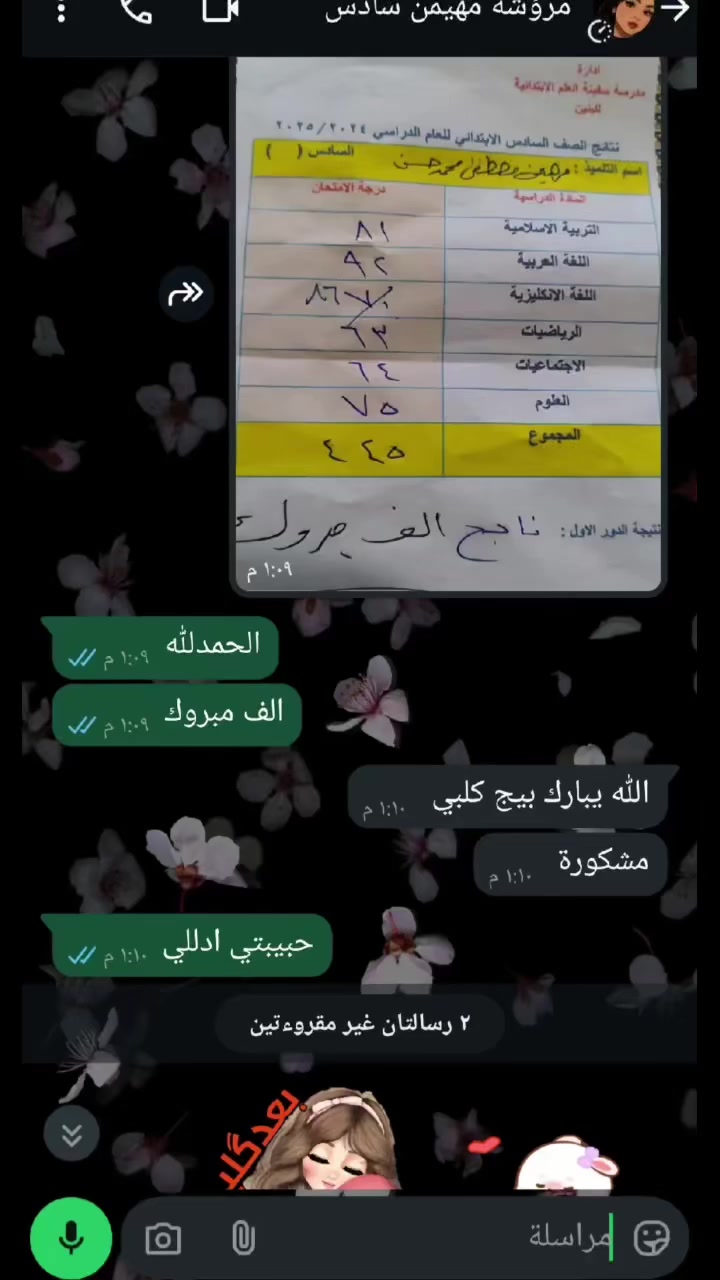 مروشه مهيمن سادس
ادارة
مدرسة سفينة العلم الابتدائية
للبنين
نتائج الصف السادس الابتدائي للعام الدراسي ٢٠٢٤/٢٠٢٥
اسم التلميذ : مهيمن مصطفى محمد حسن السادس ( )
المادة الدراسية درجة الامتحان
التربية الاسلامية ٨١
اللغة العربية ٩٢
اللغة الانكليزية ٧٠ ٨٦
الرياضيات ٦٣
الاجتماعيات ٦٤
العلوم ٧٥
المجموع ٤٤٥
نتيجة الدور الاول : ناجح الف مبروك
١:٠٩ م
الحمدلله ١:٠٩ م
الف مبروك ١:٠٩ م
الله يبارك بيج كلبي ١:١٠ م
مشكورة ١:١٠ م
حبيبتي ادللي ١:١٠ م
٢ رسالتان غير مقروءتين
بعد
مراسلة